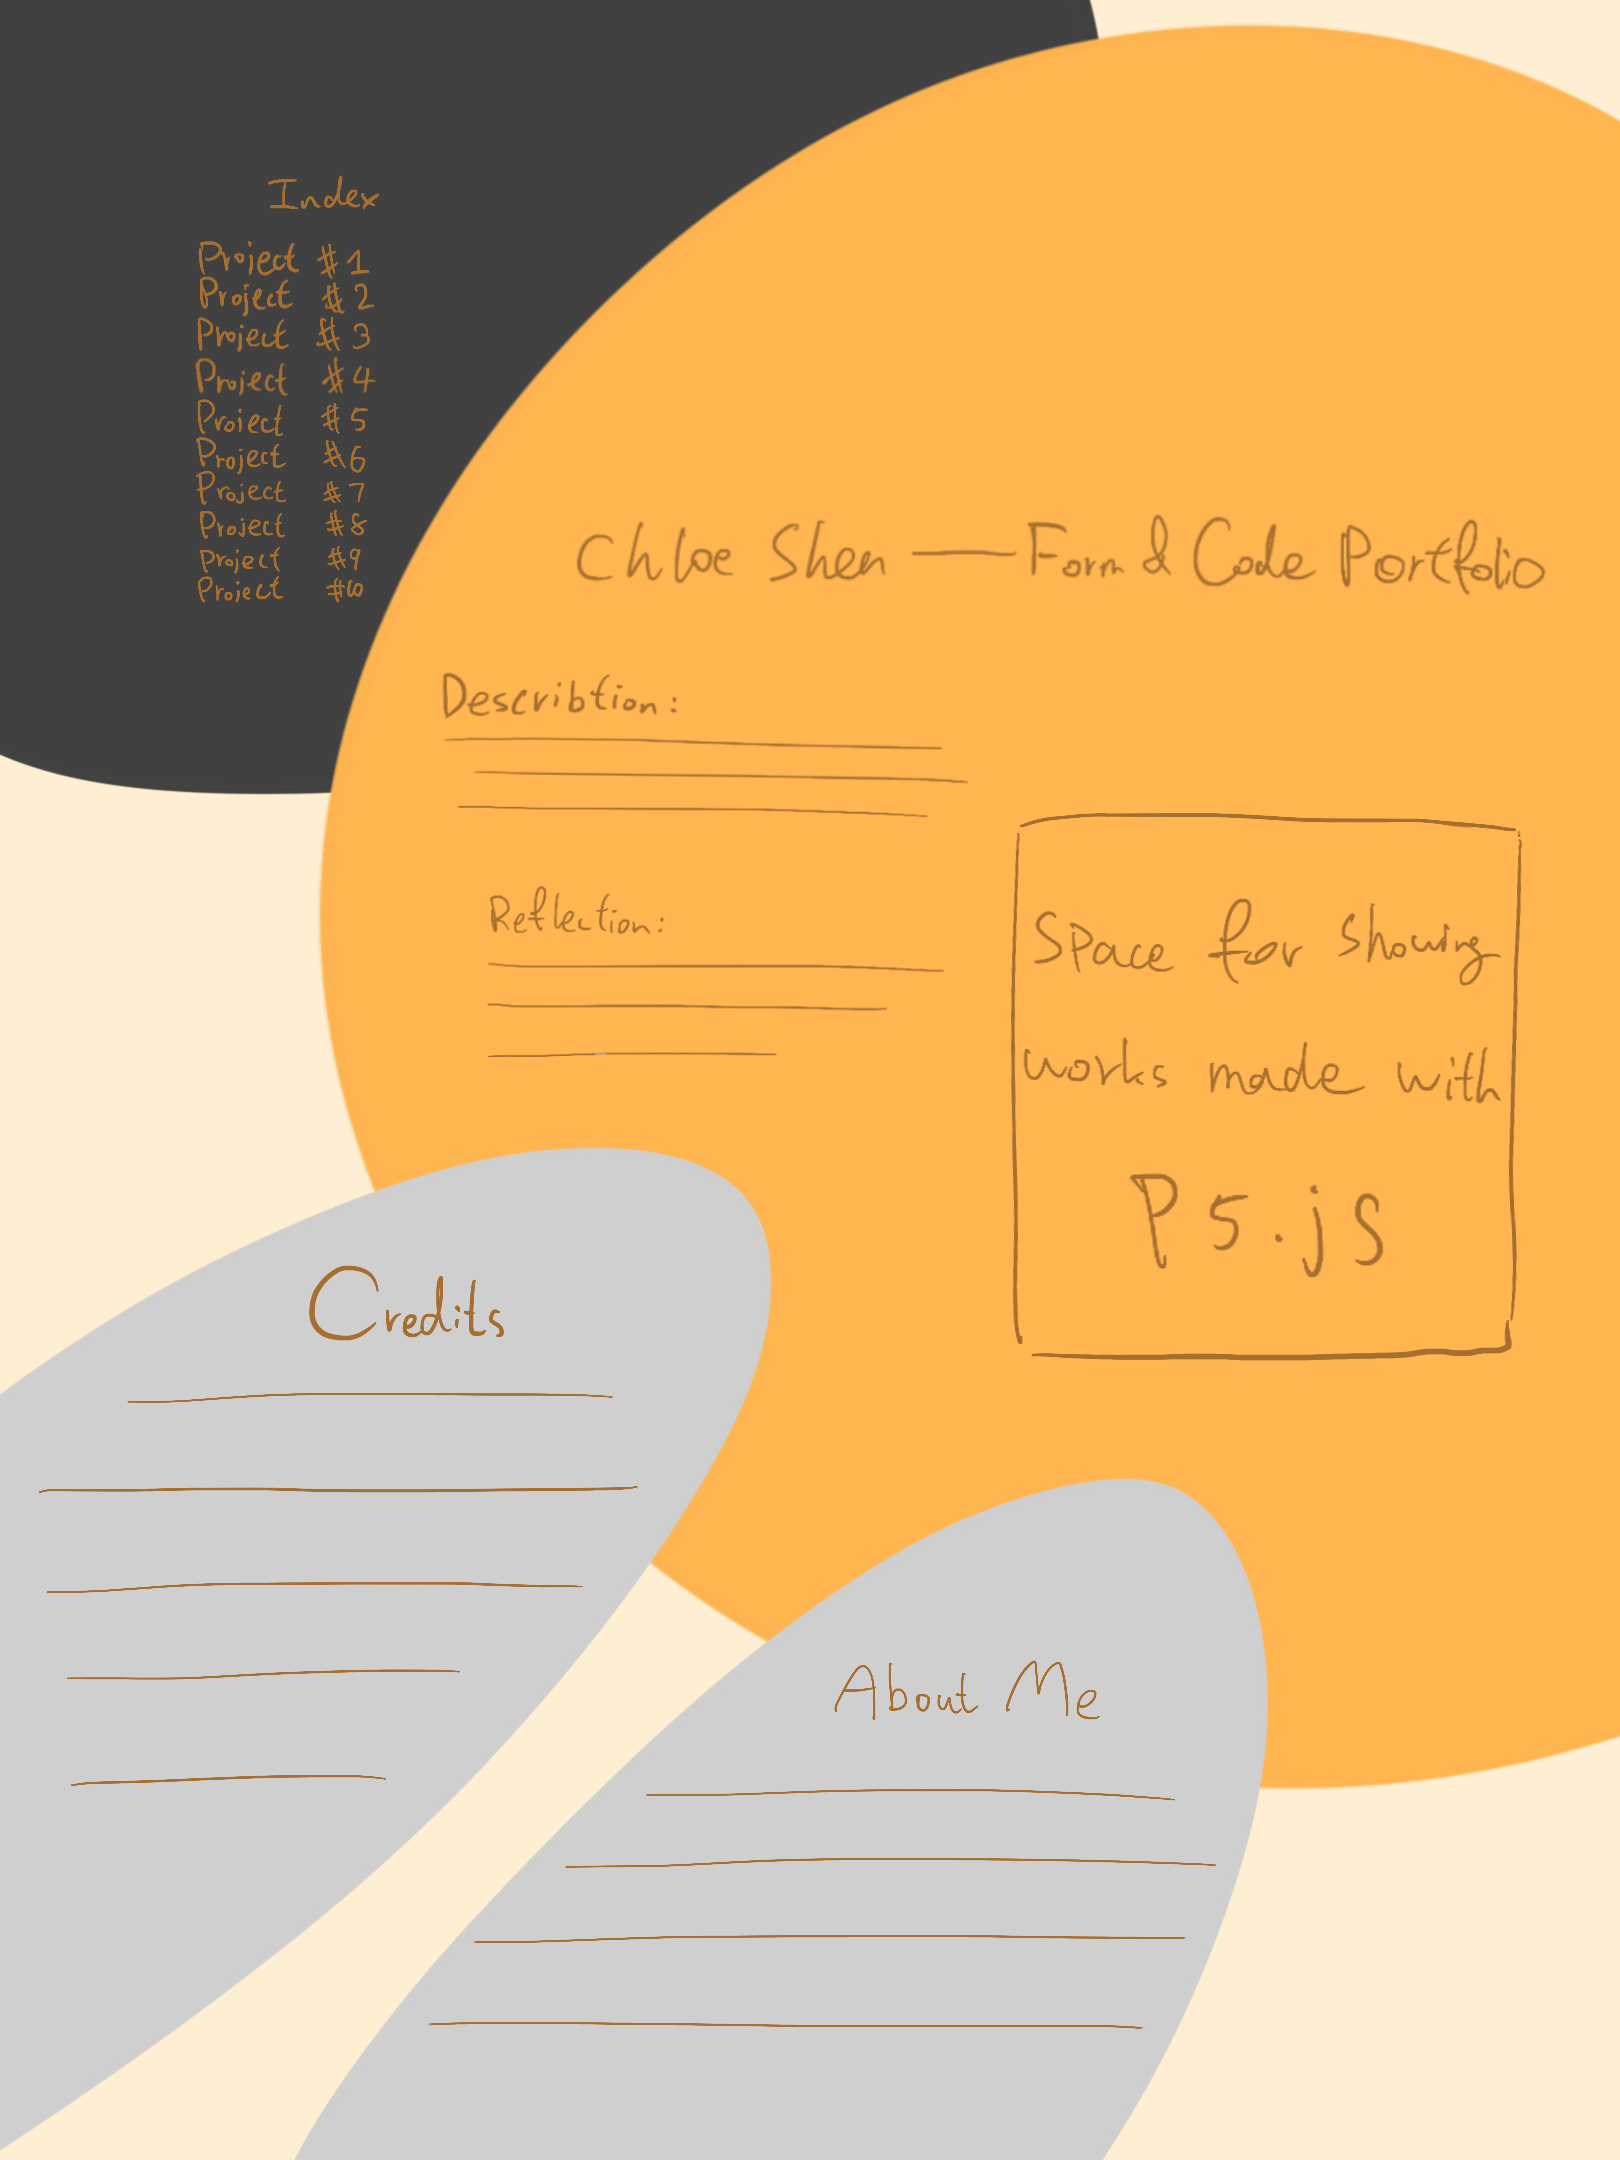 Index
Project #1
Project #2
Project #3
Project #4
Project #5
Project #6
Project #7
Project #8
Project #9
Project #10
Chloe Shen — Form & Code Portfolio
Describtion:
Reflection:
Space for showing
works made with
P5.js
Credits
About Me